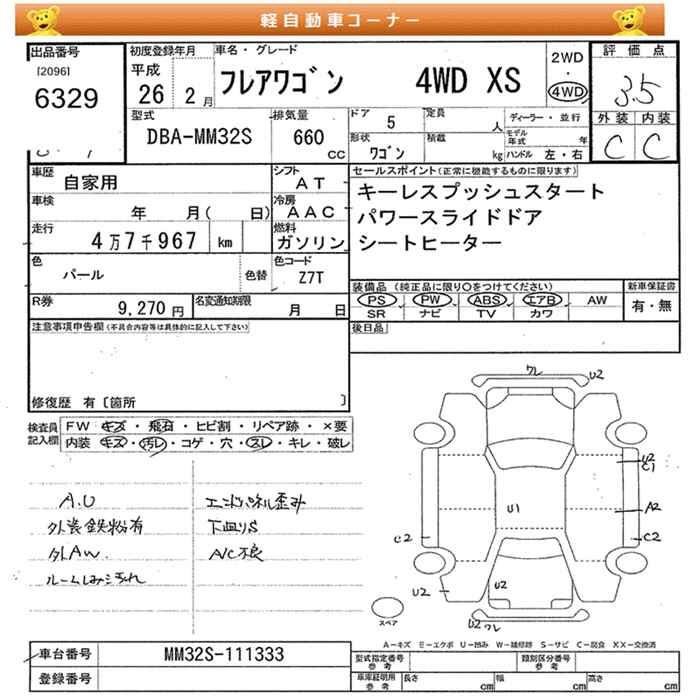 軽自動車コーナー
出品番号
[2096]
6329
初度登録年月
平成
26 年 2 月
車名・グレード
フレアワゴン 4WD XS
2WD
・
4WD
評価点
3.5
外装 内装
C C
型式
DBA-MM32S
排気量
660
cc
ドア 5
定員 人
形状 ワゴン
積載 kg
ディーラー・並行
モデル年式 年
ハンドル 左・右
車歴 自家用
シフト AT
車検 年 月( 日)
冷房 AAC
走行 4万7千967 km
燃料 ガソリン
色 パール 色替
色コード Z7T
R券 9,270 円
名変通知期限 月 日
セールスポイント(正常に機能するものに限ります)
キーレスプッシュスタート
パワースライドドア
シートヒーター
装備品 (純正品に限り○をつけてください)
PS PW ABS エアB AW
SR ナビ TV カワ
新車保証書
有・無
後日品
注意事項申告欄(不具合内容等は具体的に記入して下さい)
修復歴 有〔箇所 〕
検査員記入欄
FW キズ・飛石・ヒビ割・リペア跡・×要
内装 キズ・汚レ・コゲ・穴・スレ・キレ・破レ
A.U
外装鉄粉有
外AW.
ルームしみ汚れ
エンドパネル歪み
下回りS
A/C不良
ワレ U2
U2
C1
A2
C2
U1
C2
U2
U2
U2 ワレ
スペア
A－キズ E－エクボ U－凹み W－補修跡 S－サビ C－腐食 XX－交換済
車台番号 MM32S-111333
登録番号
型式指定番号 参考
類別区分番号 参考
車庫証明用 参考
長さ cm
幅 cm
高さ cm